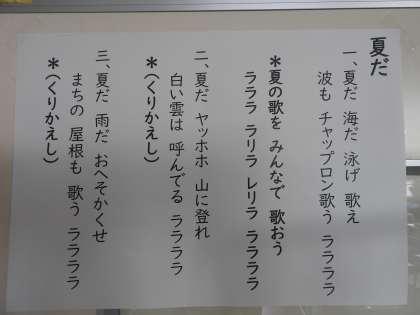 夏だ
一、夏だ 海だ 泳げ 歌え
波も チャップロン歌う ララララ
*夏の歌を みんなで 歌おう
ラララ ラリラ レリラ ララララ
二、夏だ ヤッホホ 山に登れ
白い雲は 呼んでる ララララ
*(くりかえし)
三、夏だ 雨だ おへそかくせ
まちの 屋根も 歌う ララララ
*(くりかえし)